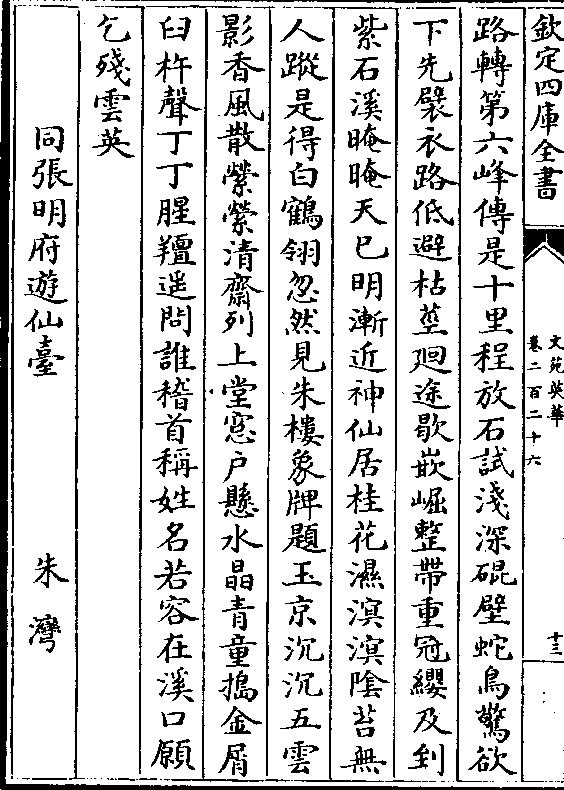 欽定四庫全書
文苑英華
卷二百二十六
十三
路轉第六峰傳是十里程放石試淺深硍壁蛇鳥驚欲
下先褰衣路低避枯莖廻途歇嵌崛整帶重冠纓及到
紫石溪晻晻天已明漸近神仙居桂花濕溟溟陰苔無
人蹤是得白鶴翎忽然見朱樓象牌題玉京沉沉五雲
影香風散縈縈清齋列上堂窓户懸水晶青童搗金屑
臼杵聲丁丁腥羶遥問誰稽首稱姓名若容在溪口願
乞殘雲英
同張明府遊仙臺　朱灣